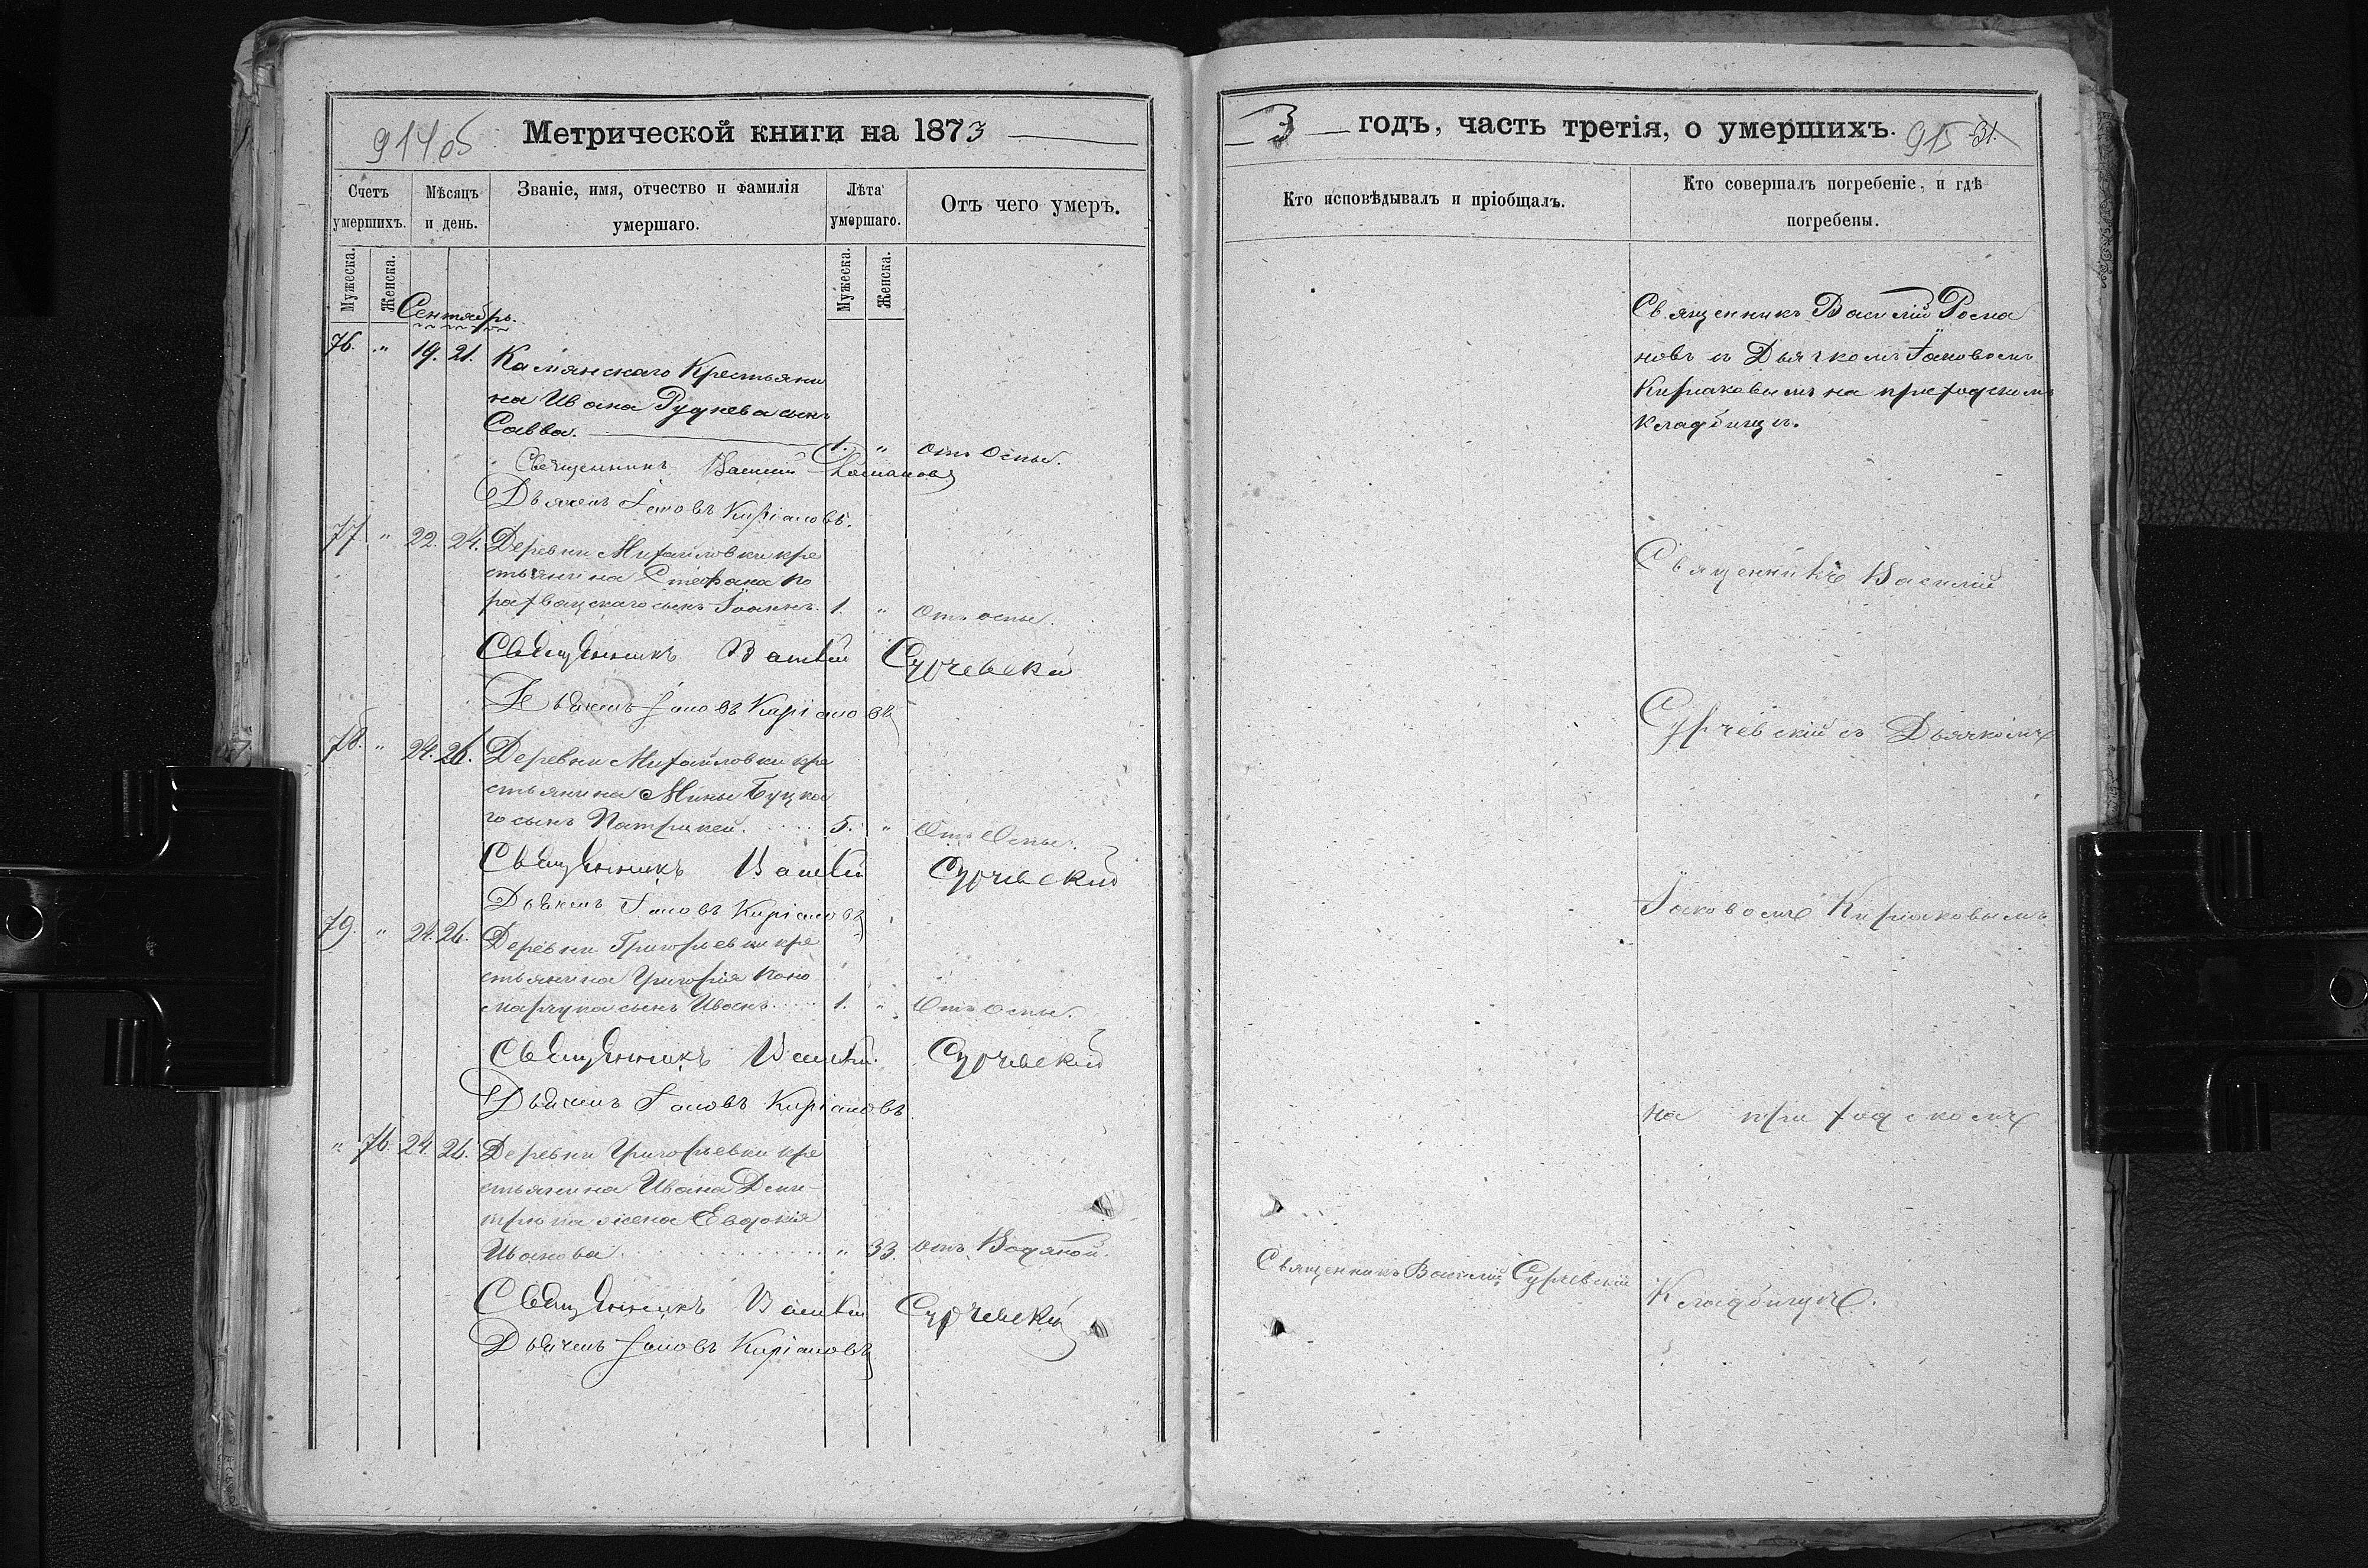 914об Метрической книги на 1873
Счетъ умершихъ.
Мѣсяцъ и день.
Званіе, имя, отчество и фамилія умершаго.
Лѣта умершаго.
Отъ чего умеръ.
Мужеска. Женска. Мужеска. Женска.
Сентябрь.
76. " 19. 21. Камянскаго Крестьяни
на Ивана Руднева сынъ
Савва. 1. " отъ Оспы.
Священникъ Василій Романовъ
Дьячекъ Іаковъ Киріаковъ.
77. " 22. 24. Деревни Михайловки кре
стьянина Стефана
сынъ Іоаннъ. 1. " Отъ оспы.
Священникъ Василій Сурчевскій
Дьячекъ Іаковъ Киріаковъ
78. " 24. 26. Деревни Михайловки кре
стьянина Мины Буцка
го сынъ Патрикей. 5. " Отъ Оспы.
Священникъ Василій Сурчевскій
Дьячекъ Іаковъ Киріаковъ
79. " 24. 26. Деревни Григорьевки кре
стьянина Григорія Поно
марчука сынъ Иванъ. 1. " Отъ Оспы.
Священникъ Василій Сурчевскій
Дьячекъ Іаковъ Киріаковъ
" 76 24. 26. Деревни Григорьевки кре
стьянина Ивана Дми-
трюка жена Евдокія
Иванова " 33. отъ Водяной.
Священникъ Василій Сурчевскій
Дьячекъ Іаковъ Киріаковъ
3 годъ, часть третія, о умершихъ. 915 31
Кто исповѣдывалъ и пріобщалъ.
Кто совершалъ погребеніе, и гдѣ погребены.
Священникъ Василій Рома
новъ съ Дьячкомъ Іаковомъ
Киріаковымъ на приходскомъ
кладбищѣ.
Священникъ Василій
Сурчевскій съ Дьячкомъ
Іаковомъ Киріаковымъ
на приходскомъ
Священникъ Василій Сурчевскій
Кладбищѣ.